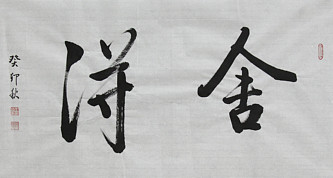 舍得
癸卯秋